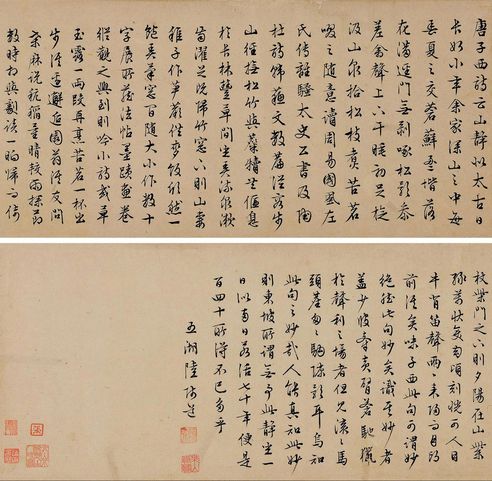 唐子西詩云山靜似太古日
長如小年余家深山之中每
春夏之交蒼蘚盈堦落
花滿逕門無剝啄松影參
差禽聲上下午睡初足旋
汲山泉拾松枝煮苦茗
啜之隨意讀周易國風左
氏傳離騷太史公書及陶
杜詩韓蘇文數篇從容步
山徑撫松竹與麋犢共偃息
於長林豐草間坐弄流泉漱
齒濯足既歸竹窗下則山妻
稚子作笋蕨供麥飯欣然一
飽弄筆窗間隨大小作數十
字展所藏法帖墨蹟畫卷
縱觀之興到則吟小詩或草
玉露一兩段再烹苦茗一杯出
步溪邊邂逅園翁溪友問
桑麻說秔稻量晴較雨探節
數時相與劇談一晌歸而倚
杖柴門之下則夕陽在山紫
綠萬狀變幻頃刻恍可人目
牛背笛聲兩兩來歸而月印
前溪矣味子西此句可謂妙
絕然此句妙矣識其妙者
蓋少彼牽黃臂蒼馳獵
於聲利之場者但見滾滾馬
頭塵匆匆駒隙影耳烏知
此句之妙哉人能真知此妙
則東坡所謂無事此靜坐一
日似兩日若活七十年便是
百四十所得不已多乎
五湖陸師道